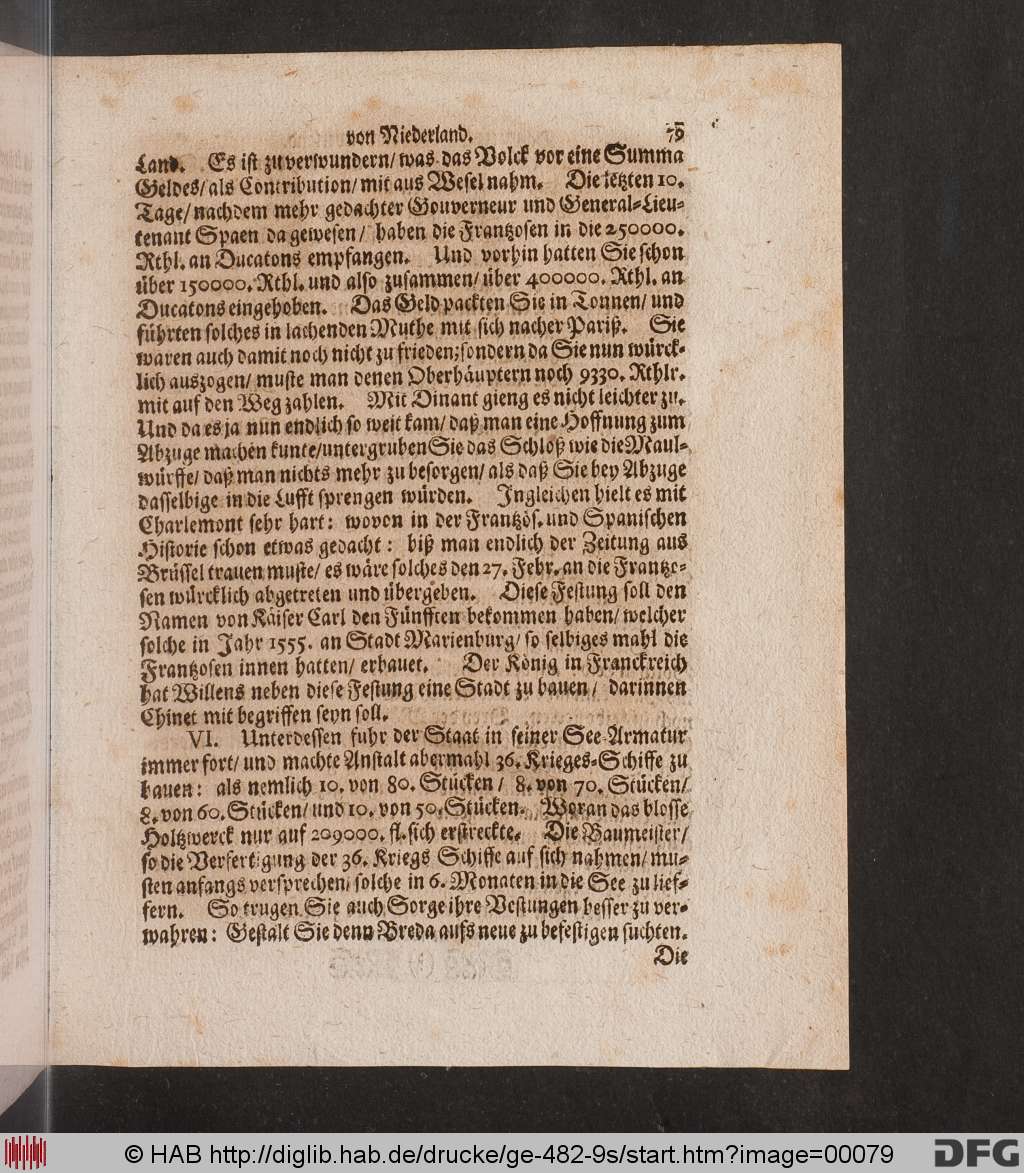 von Niederland. 79
Land. Es ist zu verwundern/ was das Volck vor eine Summa
Geldes/ als Contribution/ mit aus Wesel nahm. Die letzten 10.
Tage/ nachdem mehr gedachter Gouverneur und General-Lieu-
tenant Spaen da gewesen/ haben die Frantzosen in die 250000.
Rthl. an Ducatons empfangen. Und vorhin hatten Sie schon
über 150000. Rthl. und also zusammen/ über 400000. Rthl. an
Ducatons eingehoben. Das Geld packten Sie in Tonnen/ und
führten solches in lachenden Muthe mit sich nacher Pariß. Sie
waren auch damit noch nicht zu frieden; sondern da Sie nun würck-
lich auszogen/ muste man denen Oberhäuptern noch 9330. Rthlr.
mit auf den Weg zahlen. Mit Dinant gieng es nicht leichter zu.
Und da es ja nun endlich so weit kam/ daß man eine Hoffnung zum
Abzuge machen kunte/ untergruben Sie das Schloß wie die Maul-
würffe/ daß man nichts mehr zu besorgen/ als daß Sie bey Abzuge
dasselbige in die Lufft sprengen würden. Ingleichen hielt es mit
Charlemont sehr hart: wovon in der Frantzös. und Spanischen
Historie schon etwas gedacht: biß man endlich der Zeitung aus
Brüssel trauen muste/ es wäre solches den 27. Febr. an die Frantzo-
sen würcklich abgetreten und übergeben. Diese Festung soll den
Namen von Käiser Carl den Fünfften bekommen haben/ welcher
solche in Jahr 1555. an Stadt Marienburg/ so selbiges mahl die
Frantzosen innen hatten/ erbauet. Der König in Franckreich
hat Willens neben diese Festung eine Stadt zu bauen/ darinnen
Chinet mit begriffen seyn soll.
VI. Unterdessen fuhr der Staat in seiner See-Armatur
immer fort/ und machte Anstalt abermahl 36. Krieges-Schiffe zu
bauen: als nemlich 10. von 80. Stücken/ 8. von 70. Stücken/
8. von 60. Stücken/ und 10. von 50. Stücken. Woran das blosse
Holtzwerck nur auf 209000. fl. sich erstreckte. Die Baumeister/
so die Verfertigung der 36. Kriegs Schiffe auf sich nahmen/ mu-
sten anfangs versprechen/ solche in 6. Monaten in die See zu lief-
fern. So trugen Sie auch Sorge ihre Vestungen besser zu ver-
wahren: Gestalt Sie denn Breda aufs neue zu befestigen suchten.
Die
© HAB http://diglib.hab.de/drucke/ge-482-9s/start.htm?image=00079
DFG